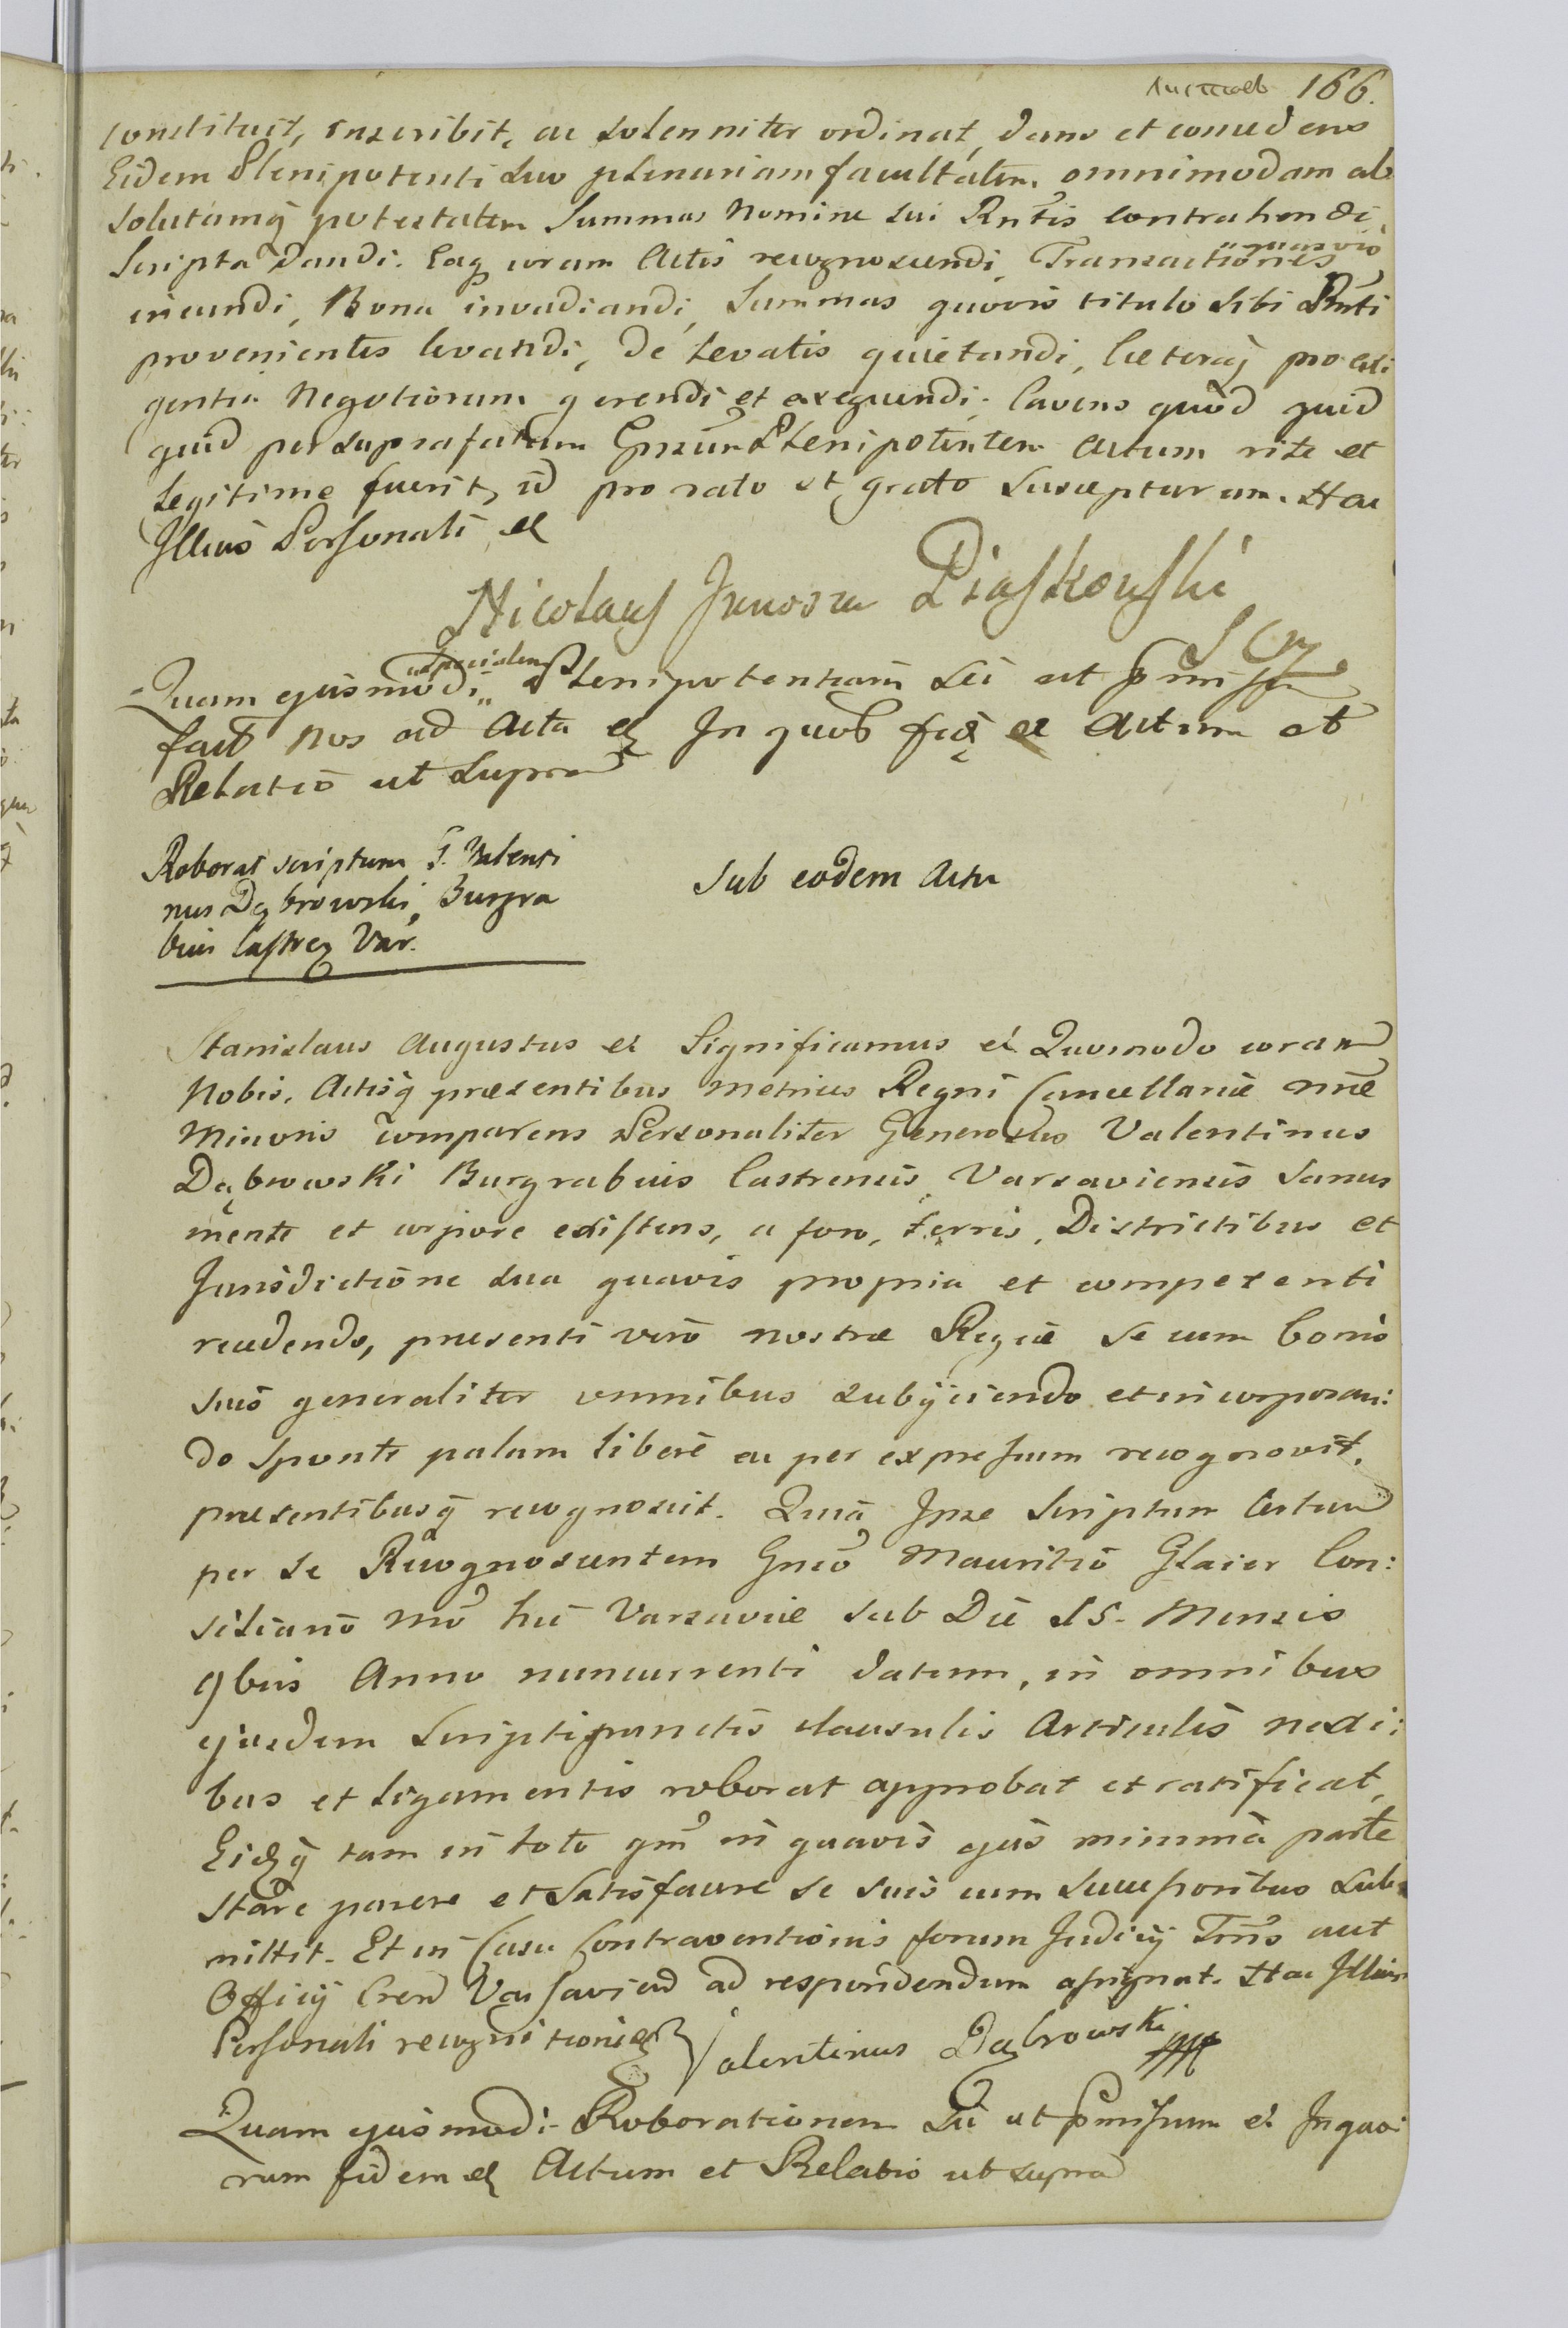 листов 166.
constituit, inscribit, ac solenniter ordinat, dans et concedens
Eidem Plenipotenti suo plenariam facultatem, omnimodam ab
solutamq̃ potestatem Summas Nomine sui Rntis contrahendi
Scripta dandi. Eaq coram Actis recognoscendi, Transactiones quasvis
ineundi, Bona invadiandi, Summas quovis titulo sibi Rnti
provenientes levandi, de levatis quietandi, Caeteraq̃ pro exi
gentia Negotiorum gerendi et exequendi. Cavens quod quid
quid per suprafatum Gnrum Plenipotentem Actum rite et
Legitime fuerit, id pro rato et grato suscepturum. Hac
Illius Personali et
Nicolaus Junosza Piaskowski
SCM
Quam ejusmodi specialem Plenipotentiam Sic ut pmissa
fact Nos ad Acta et In quor fid et Actum et
Relatio ut supra
Roborat scriptum G. Valenti
nus Dąbrowski, Burgra
bius Castren Var.
Sub eodem Actu
Stanislaus Augustus et Significamus et Quomodo coram
Nobis, Actisq̃ praesentibus Metrices Regni Cancellariae nrae
Minoris comparens Personaliter Generosus Valentinus
Dąbrowski Burgrabius Castrensis Varsaviensis Sanus
mente et corpore existens, a foro, terris, Districtibus et
Jurisdictione sua quavis propria et competenti
recedendo, praesenti vero nostrae Regiae se cum bonis
suis generaliter omnibus subijciendo et incorporan:
do sponte palam libere ac per expressum recognovit,
praesentibusq̃ recognoscit. Quia Ipse Scriptum Certum
per se Recognoscentem Gneo Mauritio Glaier Con:
siliario nro hic Varsaviae sub Die 15. Mensis
9bris Anno nuncurrenti datum, in omnibus
ejusdem Scripti punctis clausulis Articulis nexi:
bus et ligamentis roborat approbat et ratificat,
Eidq̃ tam in toto qm in quavis ejus minima parte
stare parere et satisfacere se suis cum Successoribus sub
mittit. Et in Casu Contraventionis forum Judicij Trris aut
Officij Cren Varsavien ad respondendum assignat. Hac Illius
Personali recognitione et Valentinus Dąbrowski
Quam ejusmodi Roborationem Sic ut pmissum et In quo:
rum fidem et Actum et Relatio ut supra